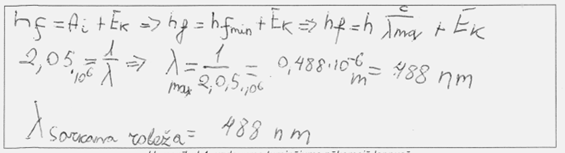 hf = Ai + Ek => hf = hfmin + Ek => hf = h c/λmax + Ek
2,05·10⁶ = 1/λ => λmax = 1/2,05·10⁶ = 0,488·10⁻⁶ m = 488 nm
λ sarkanā robeža = 488 nm